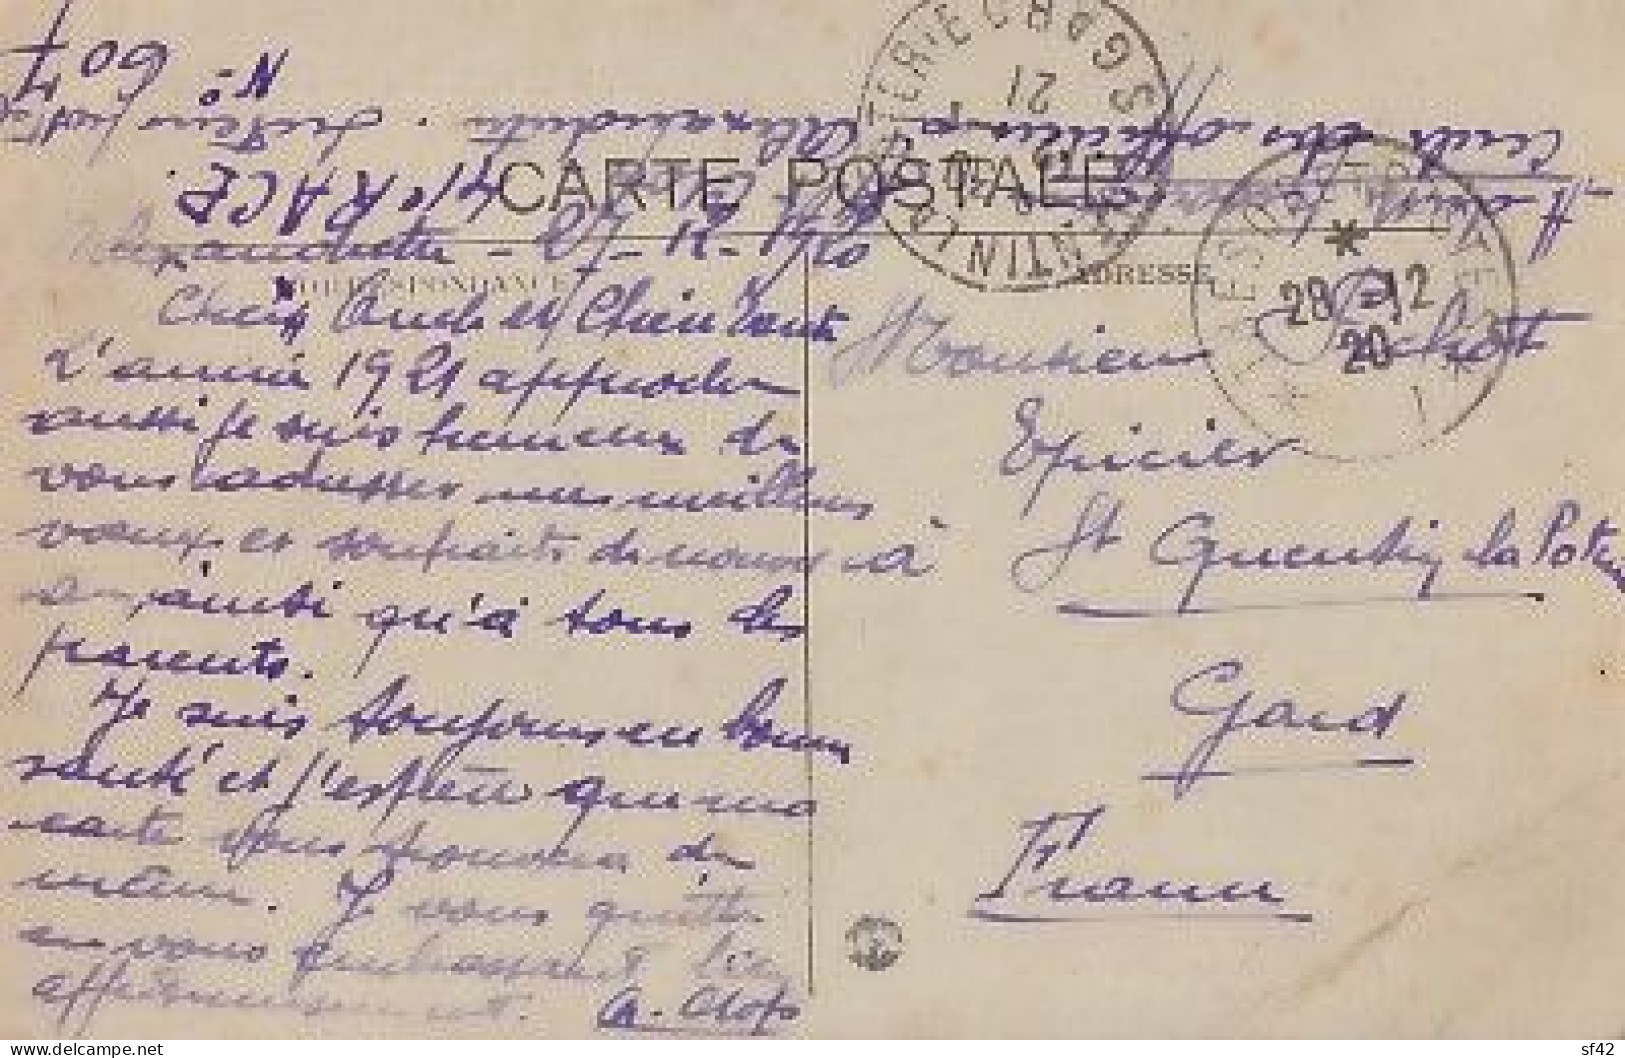 CARTE POSTALE
CORRESPONDANCE
ADRESSE
Alexandrette - 27-12-1920
Cher Oncle et Chère Tante
L'année 1921 approche
aussi je suis heureux de
vous adresser mes meilleurs
vœux et souhaits de nouvel
an ainsi qu'à tous les
parents.
Je suis toujours en bonne
santé et j'espère que ma
carte vous trouvera de
même. Je vous quitte
en vous embrassant bien
affectueusement.
Monsieur
Epicier
à St Quentin la Poterie
Gard
France
TRESOR ET POSTES
28 - 12
20
21
N° 607
Alexandrette. Secteur postal
Cercle des officiers